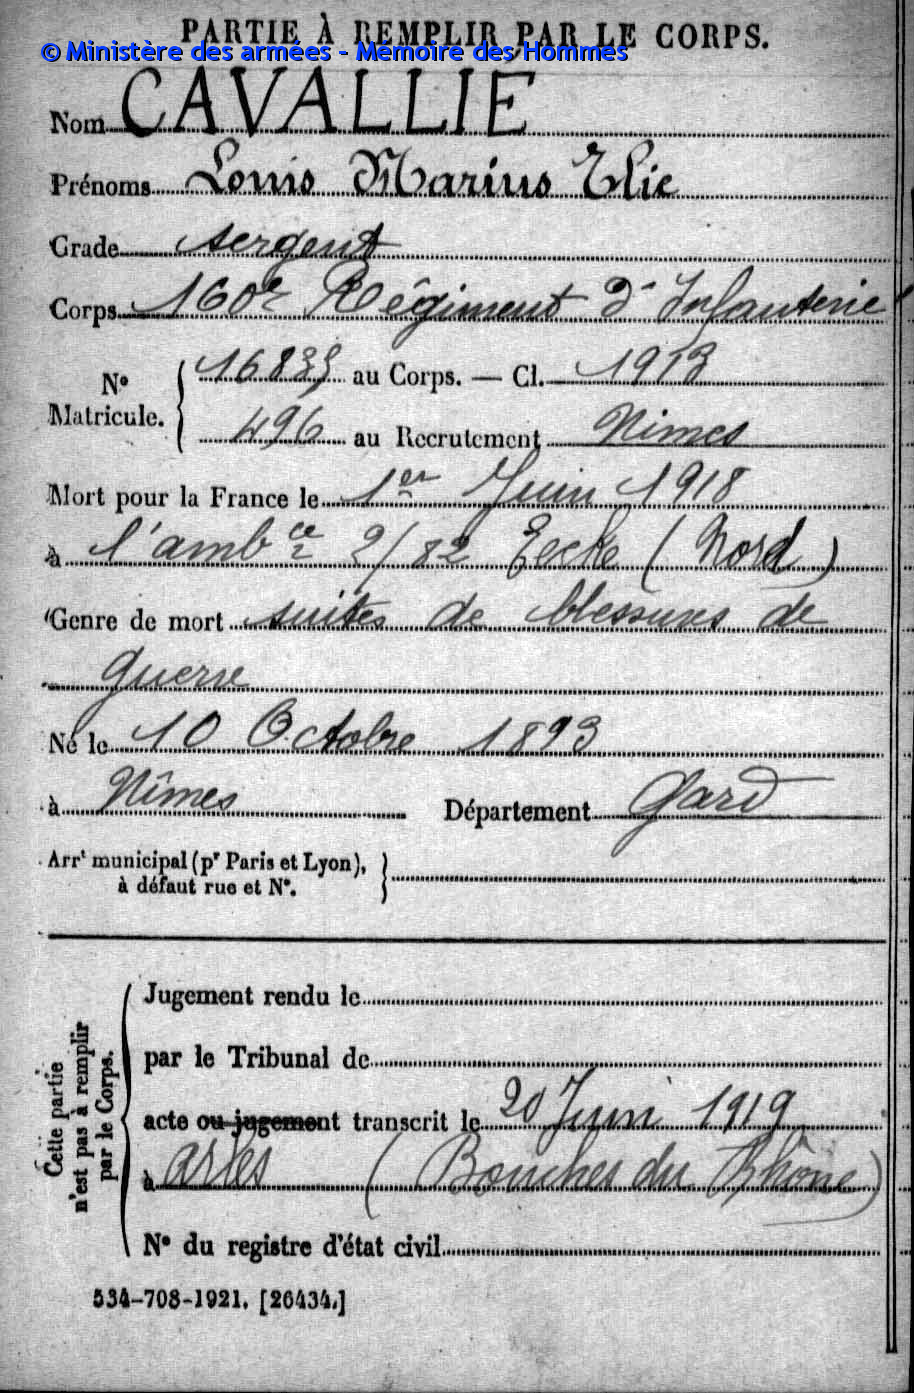 PARTIE À REMPLIR PAR LE CORPS.
© Ministère des armées - Mémoire des Hommes
Nom CAVALLIÉ
Prénoms Louis Marius Elie
Grade sergent
Corps 160e Régiment d'Infanterie
N° Matricule. 16835 au Corps. — Cl. 1913
496 au Recrutement Nimes
Mort pour la France le 1er Juin 1918
à l'ambce 2/82 Eecke (Nord)
Genre de mort suites de blessures de
guerre
Né le 10 Octobre 1893
à Nîmes Département Gard
Arrt municipal (pr Paris et Lyon),
à défaut rue et N°.
Cette partie n'est pas à remplir par le Corps.
Jugement rendu le
par le Tribunal de
acte ou jugement transcrit le 20 Juin 1919
à Arles (Bouches du Rhône)
N° du registre d'état civil
534-708-1921. [26434.]